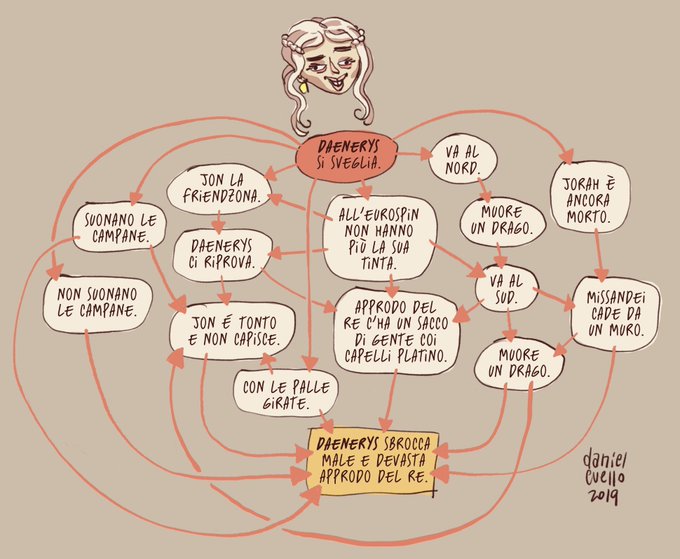 DAENERYS
SI SVEGLIA.
VA AL
NORD.
JON LA
FRIENDZONA.
JORAH È
ANCORA
MORTO.
SUONANO LE
CAMPANE.
ALL'EUROSPIN
NON HANNO
PIÙ LA SUA
TINTA.
MUORE
UN DRAGO.
DAENERYS
CI RIPROVA.
NON SUONANO
LE CAMPANE.
VA AL
SUD.
MISSANDEI
CADE DA
UN MURO.
JON É TONTO
E NON CAPISCE.
APPRODO DEL
RE C'HA UN SACCO
DI GENTE COI
CAPELLI PLATINO.
MUORE
UN DRAGO.
CON LE PALLE
GIRATE.
DAENERYS SBROCCA
MALE E DEVASTA
APPRODO DEL RE.
daniel
cuello
2019